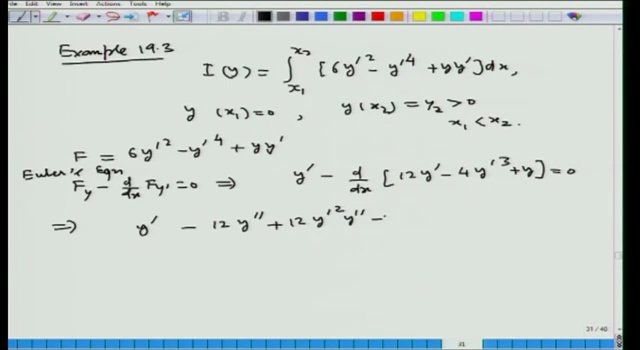 Edit View Insert Actions Tools Help
Example 19.3
I(y) = ∫_{x₁}^{x₂} [6y'² - y'⁴ + yy'] dx,
y(x₁) = 0, y(x₂) = y₂ > 0
x₁ < x₂.
F = 6y'² - y'⁴ + yy'
Euler's Eqn
F_y - d/dx F_y' = 0 ⇒ y' - d/dx [12y' - 4y'³ + y] = 0
⇒ y' - 12y'' + 12y'²y'' -
31 / 40
31